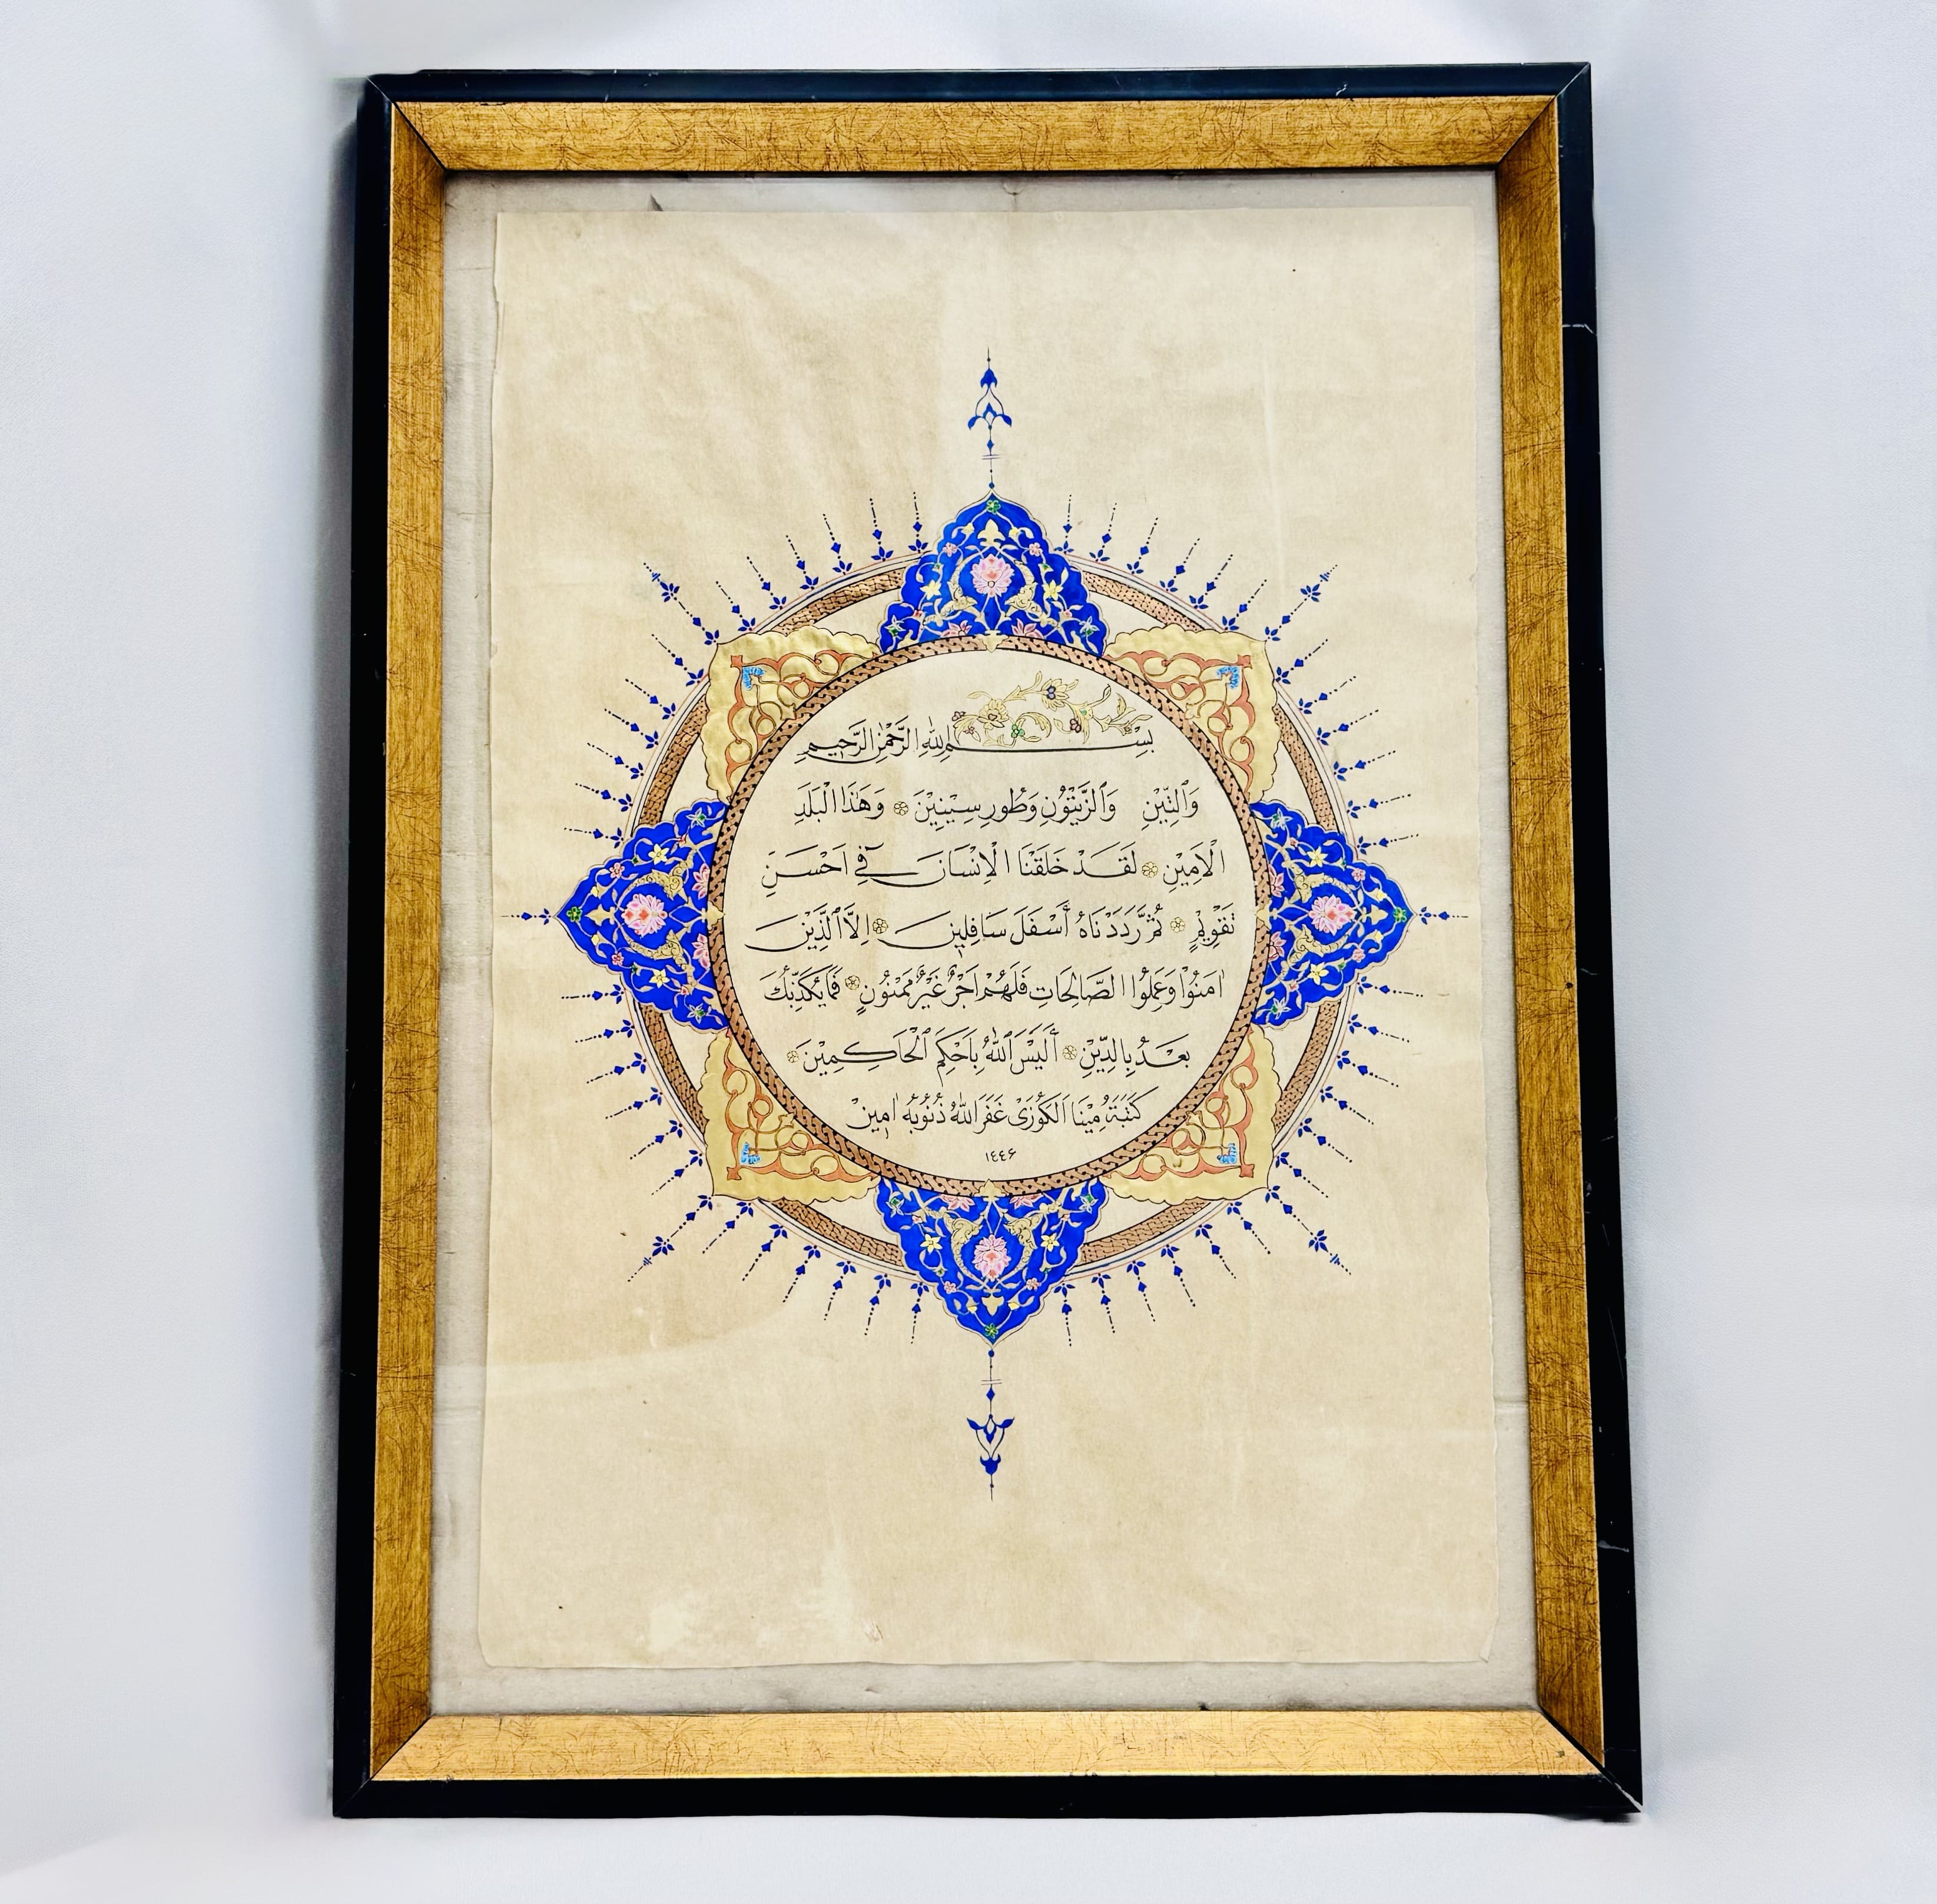 بِسْمِ اللهِ الرَّحْمٰنِ الرَّحِيمِ
وَٱلتِّيْنِ وَٱلزَّيْتُوْنِ وَطُورِ سِيْنِيْنَ ۞ وَهٰذَا الْبَلَدِ
الْاَمِيْنِ ۞ لَقَدْ خَلَقْنَا الْاِنْسَانَ فِي اَحْسَنِ
تَقْوِيْمٍ ۞ ثُمَّ رَدَدْنَاهُ أَسْفَلَ سَافِلِينَ ۞ اِلَّا ٱلَّذِيْنَ
اٰمَنُوْا وَعَمِلُوا الصَّالِحَاتِ فَلَهُمْ اَجْرٌ غَيْرُ مَمْنُوْنٍ ۞ فَمَا يُكَذِّبُكَ
بَعْدُ بِالدِّيْنِ ۞ أَلَيْسَ ٱللّٰهُ بِاَحْكَمِ ٱلْحَاكِمِيْنَ ۞
كَتَبَهُ مِيْنَا اَلْكَوْزَىْ غَفَرَ اللّٰهُ ذُنُوْبَهُ اٰمِينَ
١٤٤۶